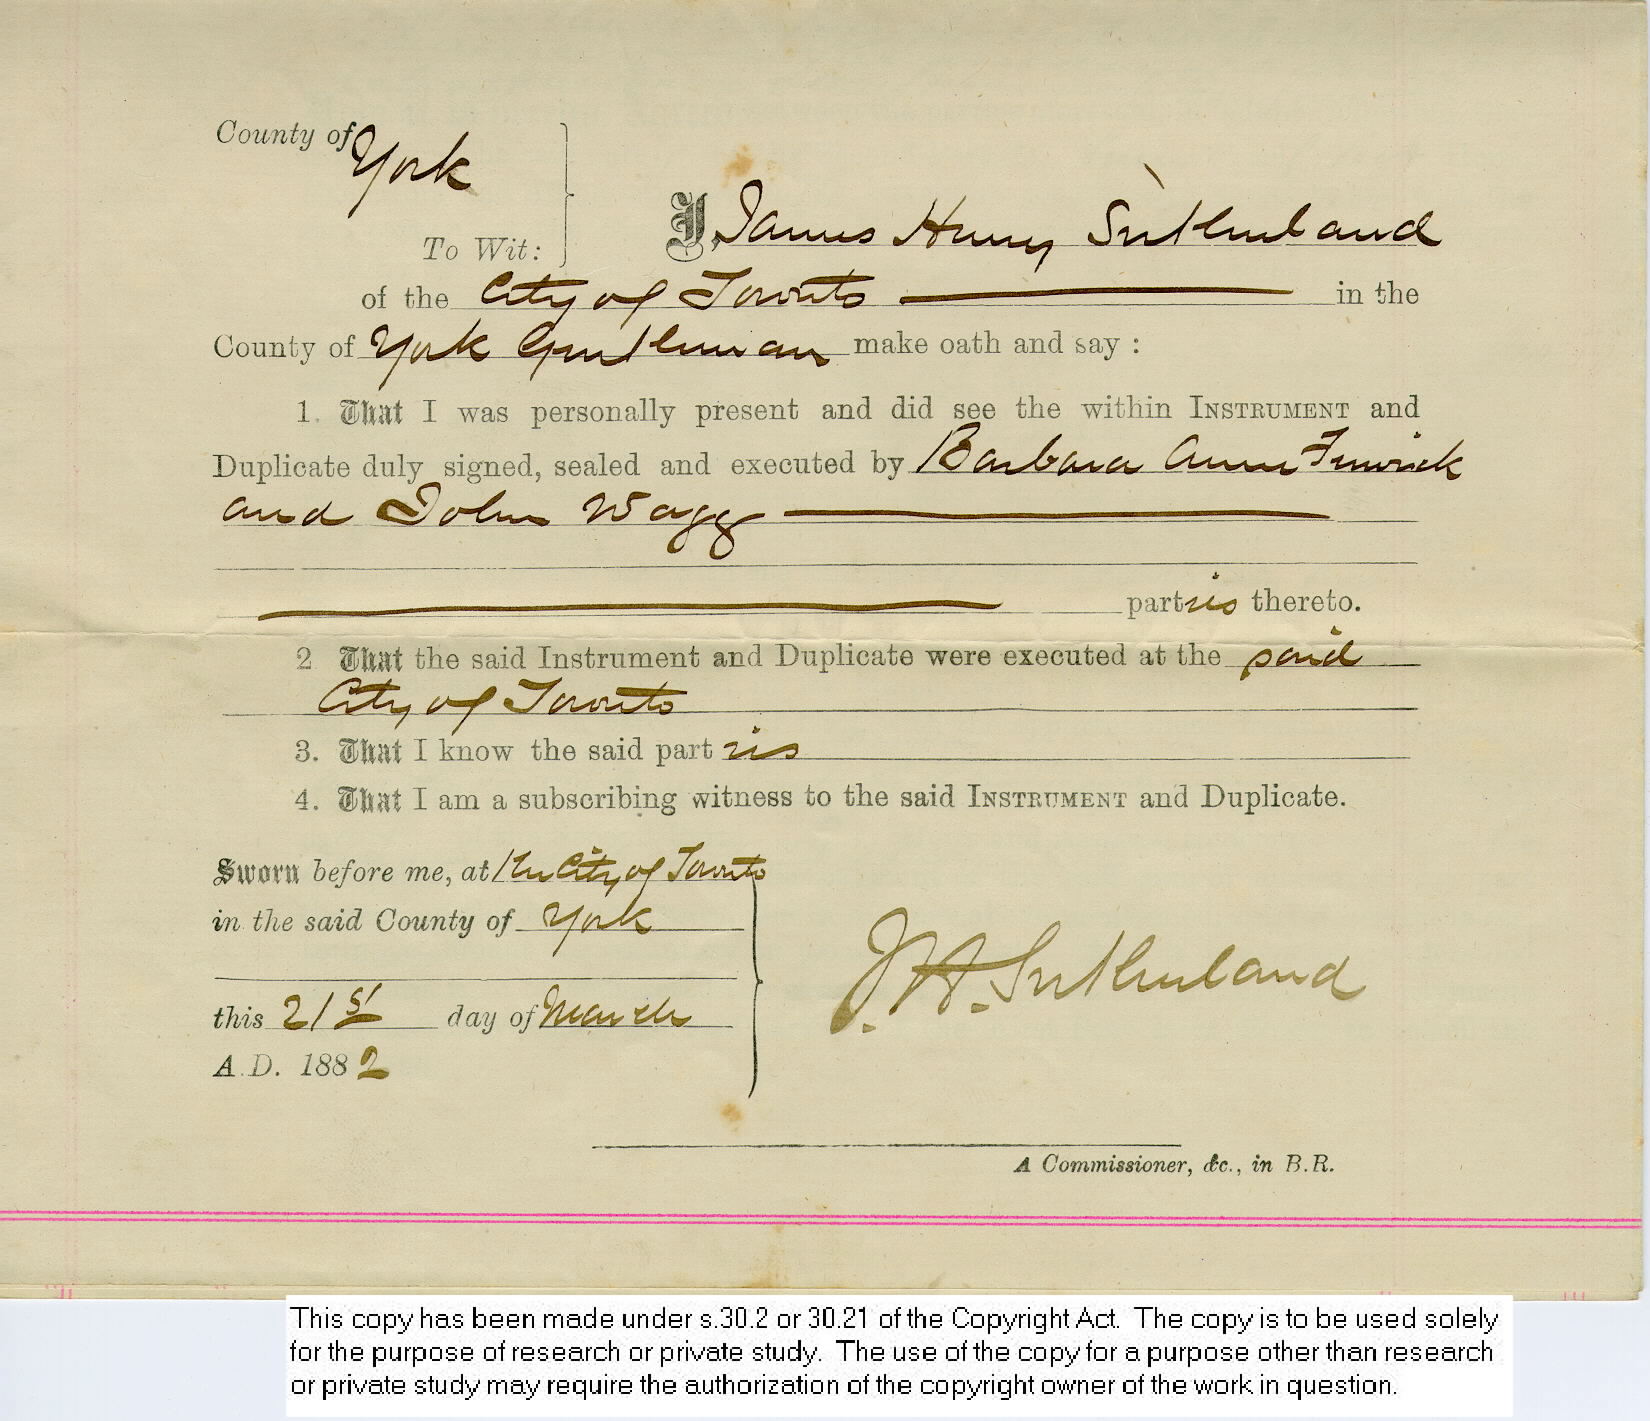 County of York
To Wit:
I, James Henry Sutherland
of the City of Toronto in the
County of York Gentleman make oath and say :
1. That I was personally present and did see the within INSTRUMENT and
Duplicate duly signed, sealed and executed by Barbara Anne Fenwick
and John Wagg
parties thereto.
2 That the said Instrument and Duplicate were executed at the said
City of Toronto
3. That I know the said parties
4. That I am a subscribing witness to the said INSTRUMENT and Duplicate.
Sworn before me, at the City of Toronto
in the said County of York
this 21st day of March
A.D. 1882
J. H. Sutherland
A Commissioner, &c., in B.R.
This copy has been made under s.30.2 or 30.21 of the Copyright Act. The copy is to be used solely
for the purpose of research or private study. The use of the copy for a purpose other than research
or private study may require the authorization of the copyright owner of the work in question.